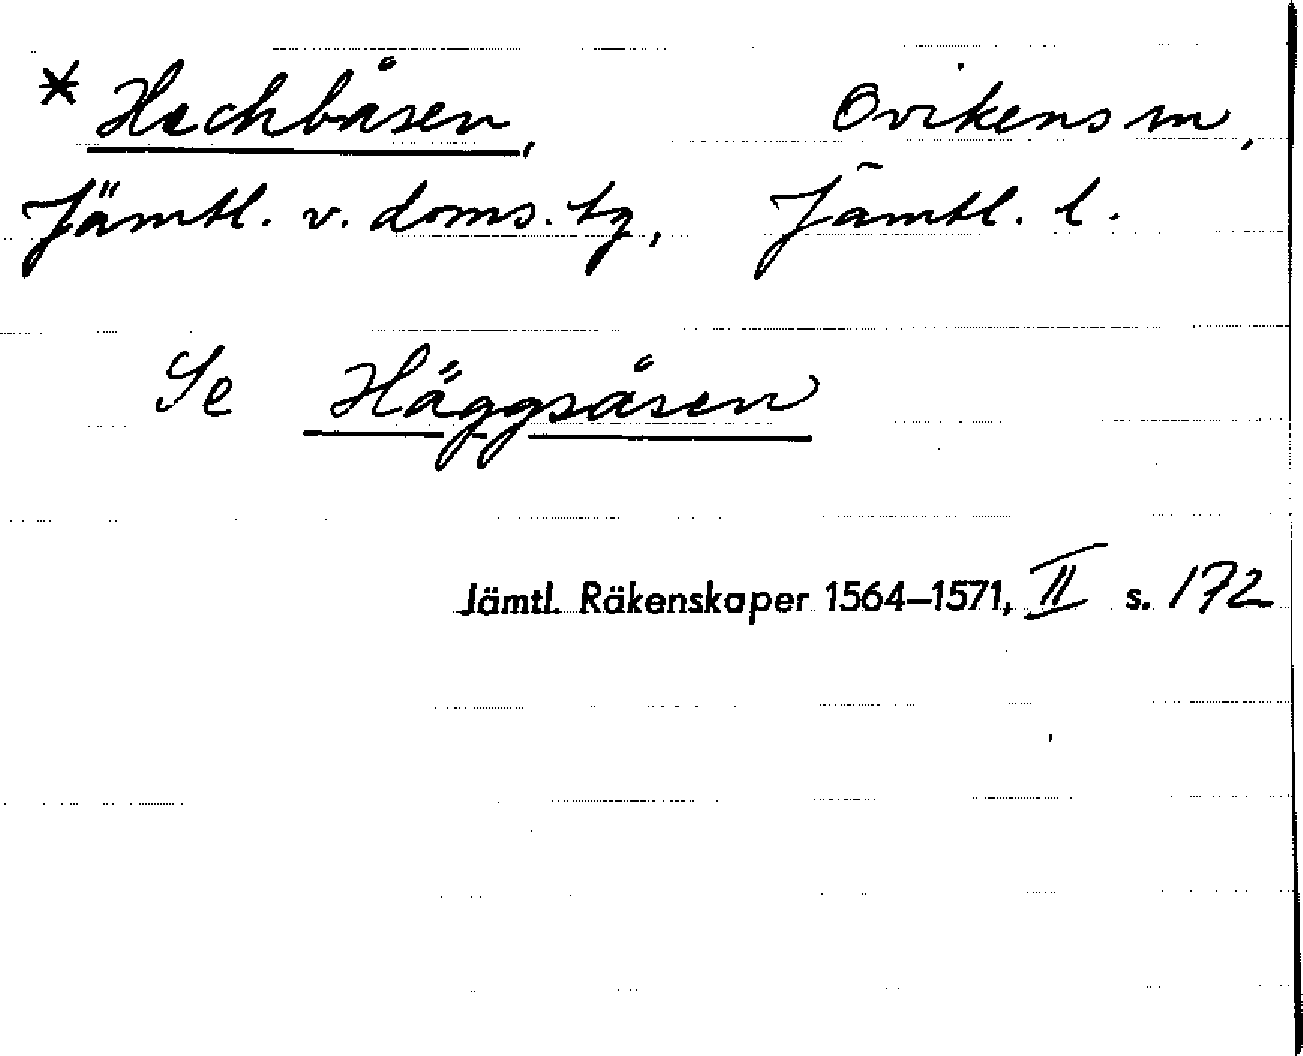 * Hackbåsen, Ovikens sn,
Jämtl. v. doms. tg, Jämtl. l.
Se Häggsåsen
Jämtl. Räkenskaper 1564–1571, II s. 172